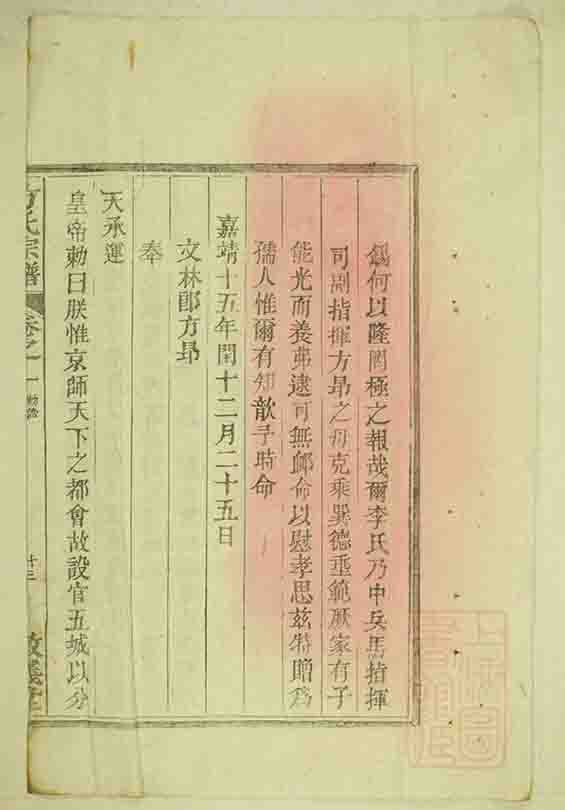 錫何以隆罔極之報哉爾李氏乃中兵馬指揮
司副指揮方昻之母克秉巽德垂範厥家有子
能光而養弗逮可無䘏命以慰孝思茲特贈爲
孺人惟爾有知歆予時命
嘉靖十五年閏十二月二十五日
文林郎方昻
奉
天承運
皇帝勅曰朕惟京師天下之都會故設官五城以分
方氏宗譜 卷之一 十三
上海圖書館藏